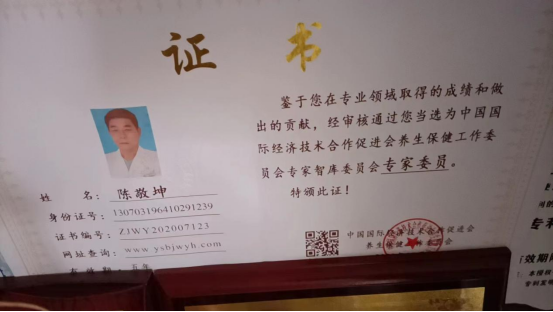 证 书
鉴于您在专业领域取得的成绩和做
出的贡献，经审核通过您当选为中国国
际经济技术合作促进会养生保健工作委
员会专家智库委员会专家委员。
特颁此证！
姓 名：陈敬坤
身份证号：130703196410291239
证书编号：ZJWY202007123
网址查询：www.ysbjwyh.com
有效期：五年
中国国际经济技术合作促进会
养生保健工作委员会
专利
有效期限